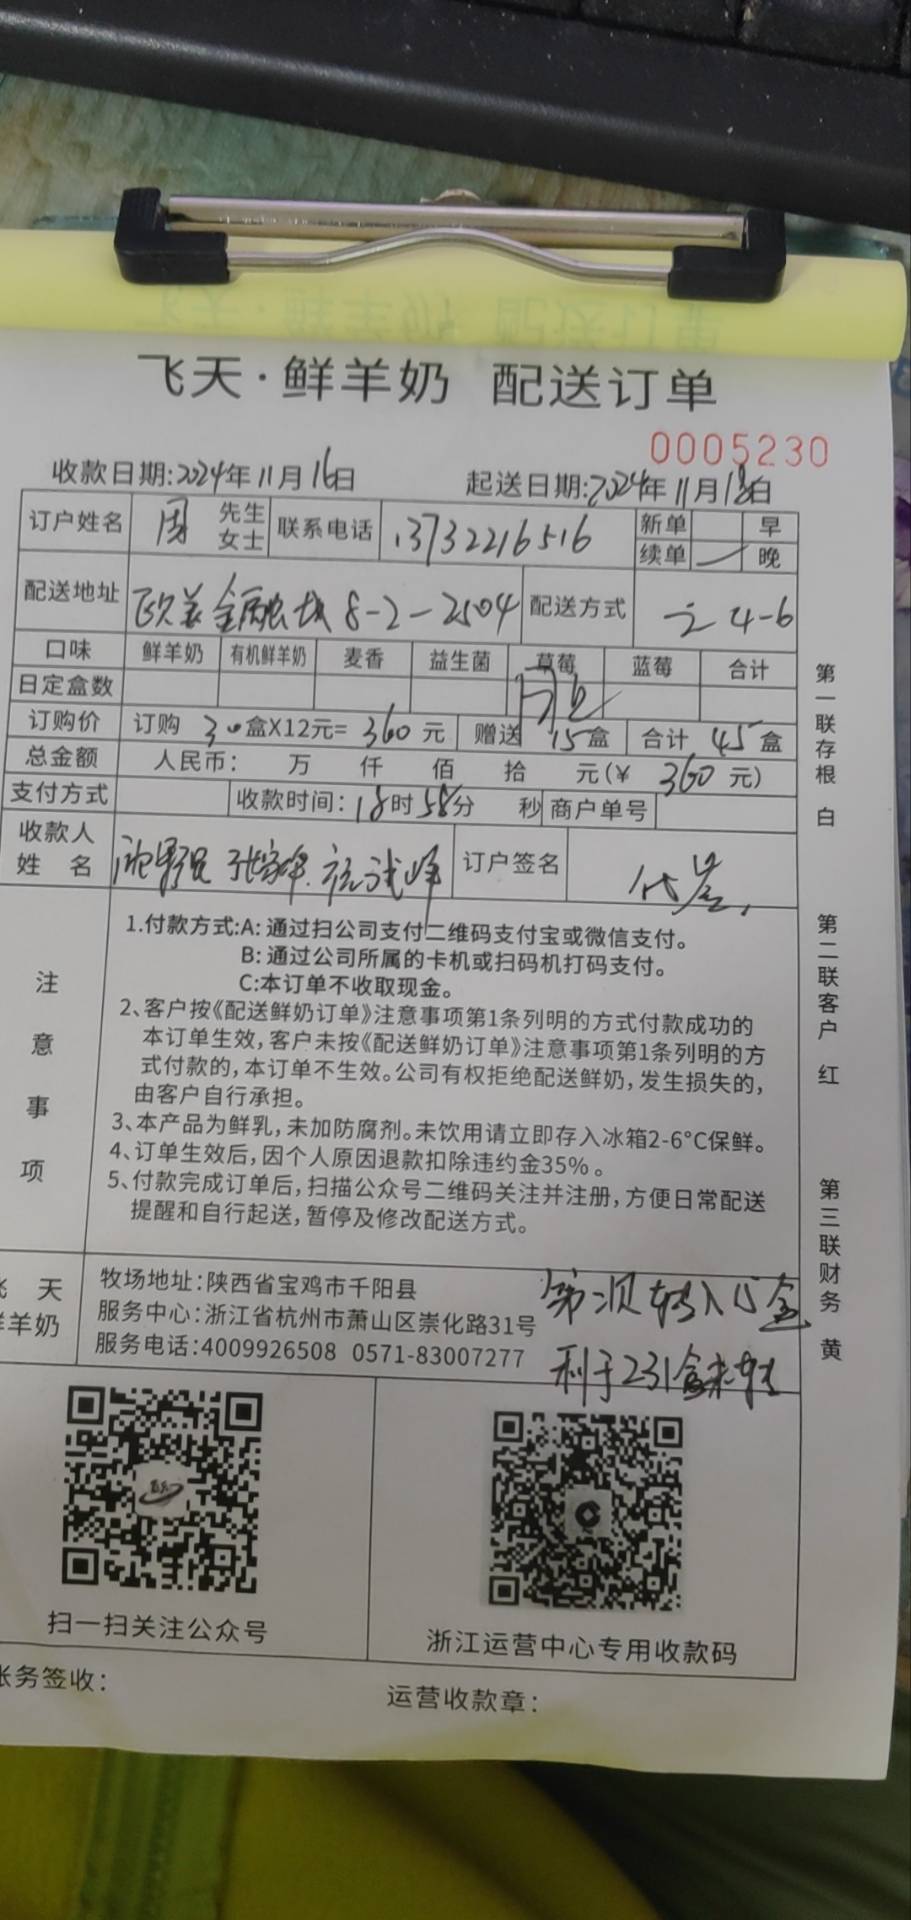 飞天·鲜羊奶 配送订单
0005230
收款日期:2024年11月16日 起送日期:2024年11月18日
订户姓名 周 先生 女士 联系电话 13732216516 新单 早
续单 晚
配送地址 欧美金融城 8-2-2504 配送方式 二 4-6
口味 鲜羊奶 有机鲜羊奶 麦香 益生菌 草莓 蓝莓 合计
日定盒数
订购价 订购 30盒X12元=360元 赠送 15盒 合计 45盒
总金额 人民币: 万 仟 佰 拾 元(¥ 360 元)
支付方式 收款时间:18时58分 秒 商户单号
收款人 姓 名 订户签名
注意事项
1.付款方式:A:通过扫公司支付二维码支付宝或微信支付。
B:通过公司所属的卡机或扫码机打码支付。
C:本订单不收取现金。
2、客户按《配送鲜奶订单》注意事项第1条列明的方式付款成功的
本订单生效,客户未按《配送鲜奶订单》注意事项第1条列明的方
式付款的,本订单不生效。公司有权拒绝配送鲜奶,发生损失的,
由客户自行承担。
3、本产品为鲜乳,未加防腐剂。未饮用请立即存入冰箱2-6°C保鲜。
4、订单生效后,因个人原因退款扣除违约金35%。
5、付款完成订单后,扫描公众号二维码关注并注册,方便日常配送
提醒和自行起送,暂停及修改配送方式。
飞 天
鲜羊奶
牧场地址:陕西省宝鸡市千阳县
服务中心:浙江省杭州市萧山区崇化路31号
服务电话:4009926508 0571-83007277
第二次转入15盒
利于231盒未转
扫一扫关注公众号
浙江运营中心专用收款码
账务签收: 运营收款章:
第一联存根 白
第二联客户 红
第三联财务 黄